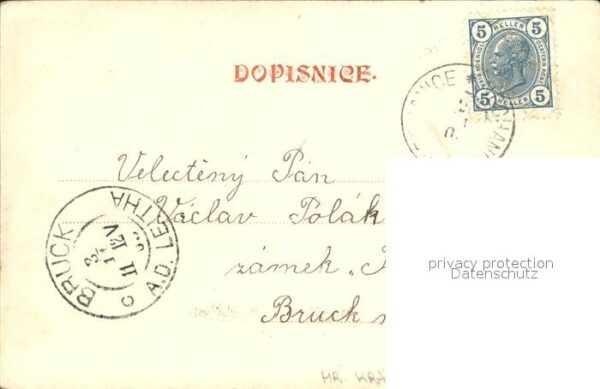 DOPISNICE.
5 HELLER 5
5 HELLER 5
Velectěný Pán
Václav Polák
zámek
Bruck
BRUCK
A.D. LEITHA
12V
privacy protection
Datenschutz
HR. KRÁ